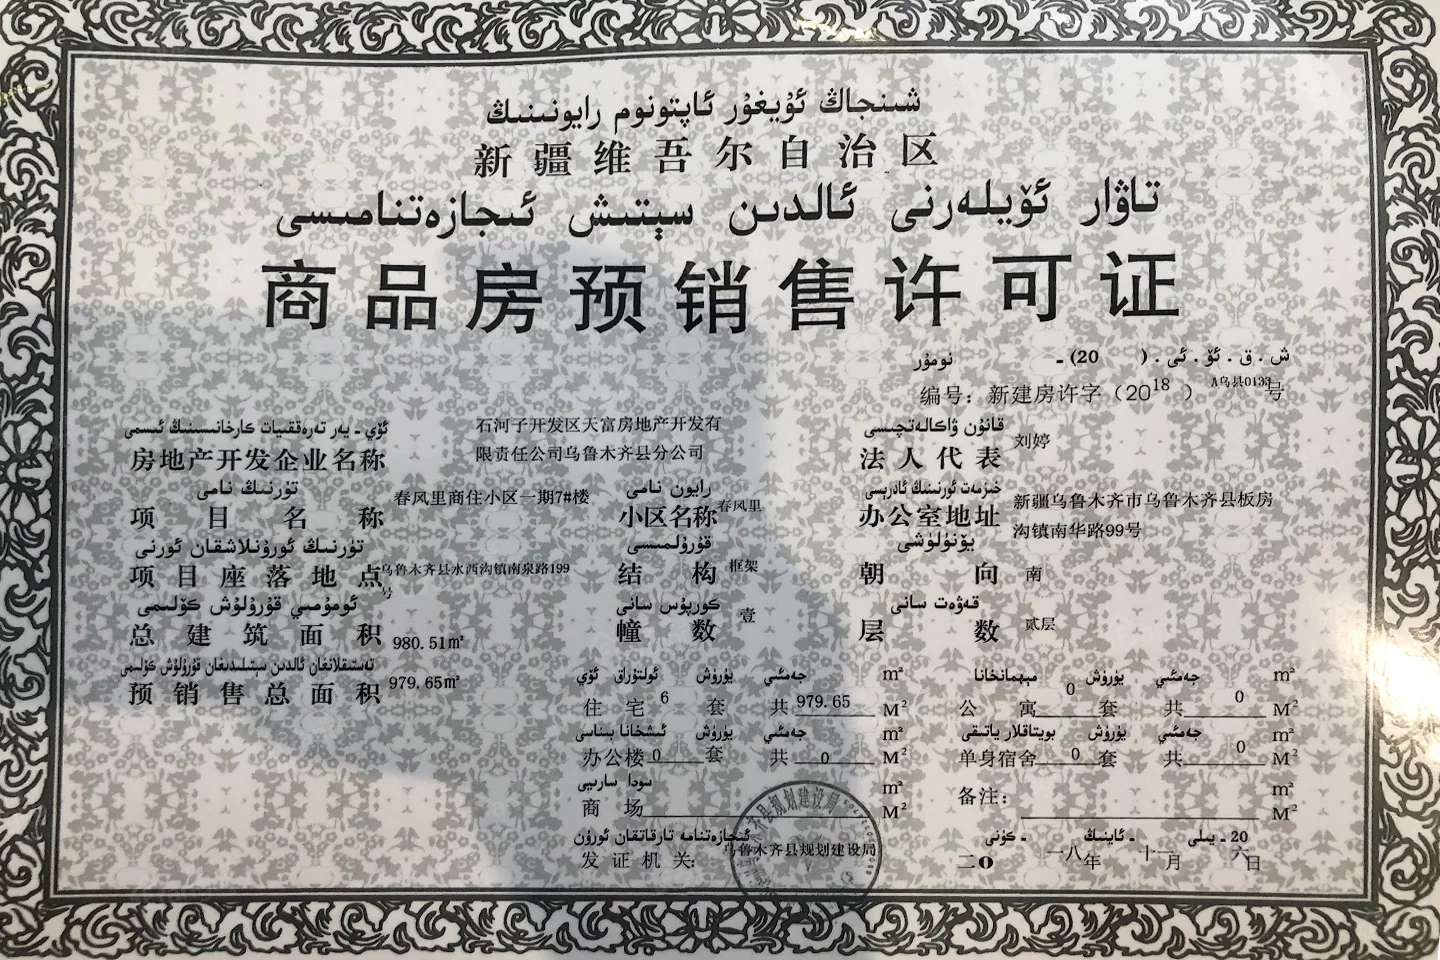 شىنجاڭ ئۇيغۇر ئاپتونوم رايونىنىڭ
新疆维吾尔自治区
تاۋار ئۆيلەرنى ئالدىن سېتىش ئىجازەتنامىسى
商品房预销售许可证
ش . ق . ئۆ . ئى . ( 20) - نومۇر
编号：新建房许字（2018）A乌县0133号
ئۆي - يەر تەرەققىيات كارخانىسىنىڭ ئىسمى
房地产开发企业名称 石河子开发区天富房地产开发有
限责任公司乌鲁木齐县分公司
قانۇن ۋاكالەتچىسى
法人代表 刘婷
تۈرنىڭ نامى
项目名称 春风里商住小区一期7#楼
رايون نامى
小区名称 春风里
خىزمەت ئورنىنىڭ ئادرېسى
办公室地址 新疆乌鲁木齐市乌鲁木齐县板房
沟镇南华路99号
تۈرنىڭ ئورۇنلاشقان ئورنى
项目座落地点 乌鲁木齐县水西沟镇南泉路199
号
قۇرۇلمىسى
结构 框架
يۆنۈلۈشى
朝向 南
ئومۇمىي قۇرۇلۇش كۆلىمى
总建筑面积 980.51㎡
كورپۇس سانى
幢数 壹
قەۋەت سانى
层数 贰层
تەستىقلانغان ئالدىن سېتىلىدىغان قۇرۇلۇش كۆلىمى
预销售总面积 979.65㎡
ئولتۇراق ئۆي يۈرۈش جەمئىي m²
住宅 6 套 共 979.65 M²
مېھمانخانا يۈرۈش جەمئىي m²
公寓 0 套 共 0 M²
ئىشخانا بىناسى يۈرۈش جەمئىي m²
办公楼 0 套 共 0 M²
بويتاقلار ياتىقى يۈرۈش جەمئىي m²
单身宿舍 0 套 共 0 M²
سودا سارىيى m²
商场 M²
m²
备注： M²
ئىجازەتنامە تارقاتقان ئورۇن
发证机关： 乌鲁木齐县规划建设局
20 - يىلى - ئاينىڭ - كۈنى
二〇一八年十一月六日